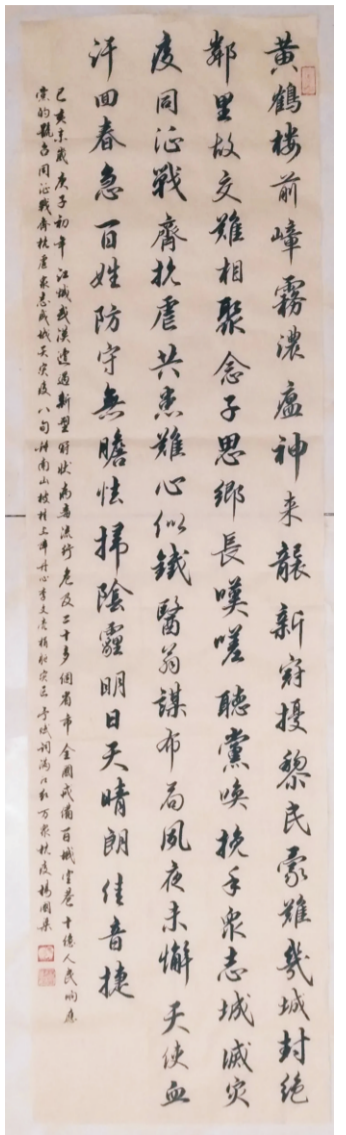 黄鶴楼前嶂霧濃瘟神来襲新冠擾黎民蒙難幾城封绝
鄰里故交難相聚念子思鄉長嘆嗟聽黨唤挽手衆志城滅灾
疫同征戰齊抗虐共患難心似鐵醫翁謀布局夙夜未懈天使血
汗回春急百姓防守無膽怯掃陰霾明日天晴朗佳音捷
己亥末歲庚子初年江城武漢遭遇新型冠状病毒流行危及二十多個省市全國戒備百城空巷十億人民响應
黨的號召同征戰齊抗虐衆志成城灭灾疫